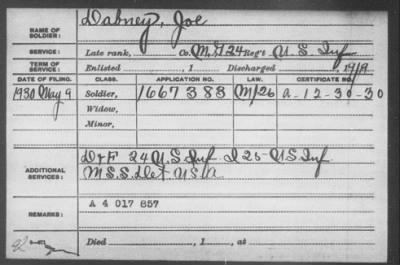 NAME OF SOLDIER: Dabney, Joe
SERVICE: Late rank, Co. M, 24 Reg't U.S. Inf
TERM OF SERVICE: Enlisted , 1 Discharged , 1919
DATE OF FILING. CLASS. APPLICATION NO. LAW. CERTIFICATE NO.
1930 May 9 Soldier, 1667 383 A-12-30-30
Widow,
Minor,
ADDITIONAL SERVICES: D & F 24 U.S. Inf I 25 US Inf
Det USA
REMARKS: A 4 017 857
Died , 1 , at